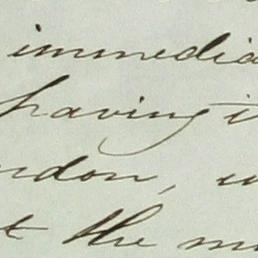 immedia
having i
ndon, w
t the m